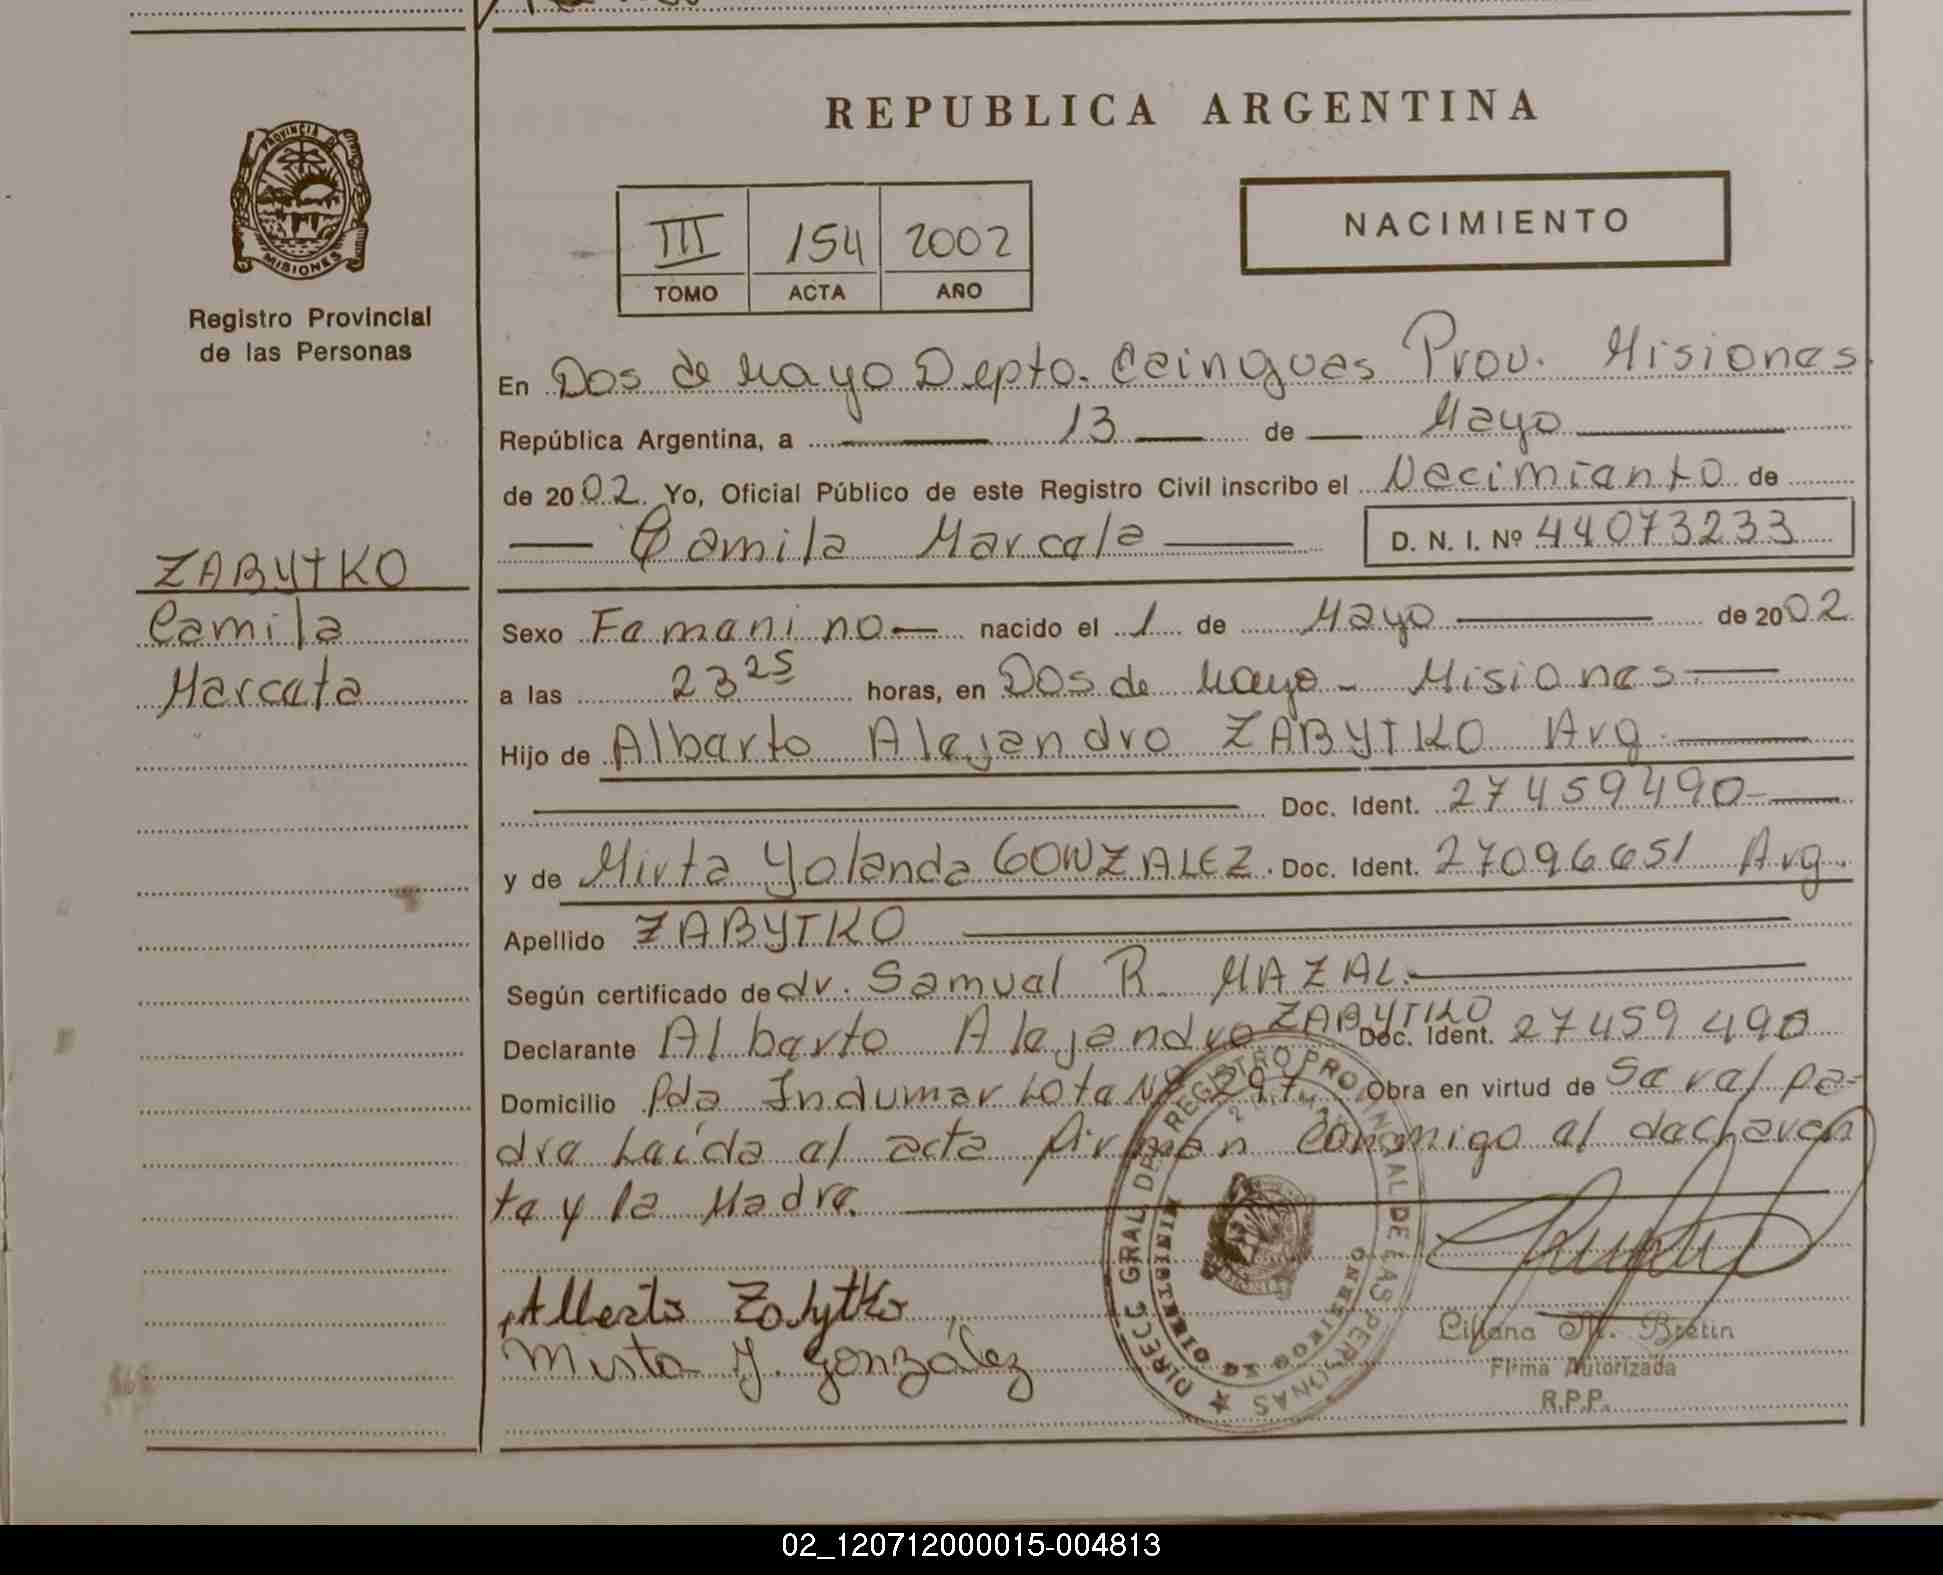 REPUBLICA ARGENTINA
PROVINCIA DE
MISIONES
Registro Provincial
de las Personas
III 154 2002
TOMO ACTA AÑO
NACIMIENTO
En Dos de Mayo Depto. Cainguas Prov. Misiones.
República Argentina, a 13 de Mayo
de 2002. Yo, Oficial Público de este Registro Civil inscribo el Nacimiento de
Camila Marcela D. N. I. Nº 44073233
ZABYTKO
Camila
Marcela
Sexo Femenino nacido el 1 de Mayo de 2002
a las 23 25 horas, en Dos de Mayo - Misiones
Hijo de Alberto Alejandro ZABYTKO Arg.
Doc. Ident. 27459490
y de Mirta Yolanda GONZALEZ. Doc. Ident. 27096651 Arg.
Apellido ZABYTKO
Según certificado de dr. Samuel R. MAZAL.
Declarante Alberto Alejandro ZABYTKO Doc. Ident. 27459490
Domicilio Pda Indumar Lote Nº 297. Obra en virtud de Ser el pa-
dre Leída el acta firman Conmigo el declaran
te y la Madre.
Alberto Zabytko
Mirta Y. González
DIRECC GRAL DEL REGISTRO PROVINCIAL DE LAS PERSONAS
Liliana M. Bretin
Firma Autorizada
R.P.P.
02_120712000015-004813